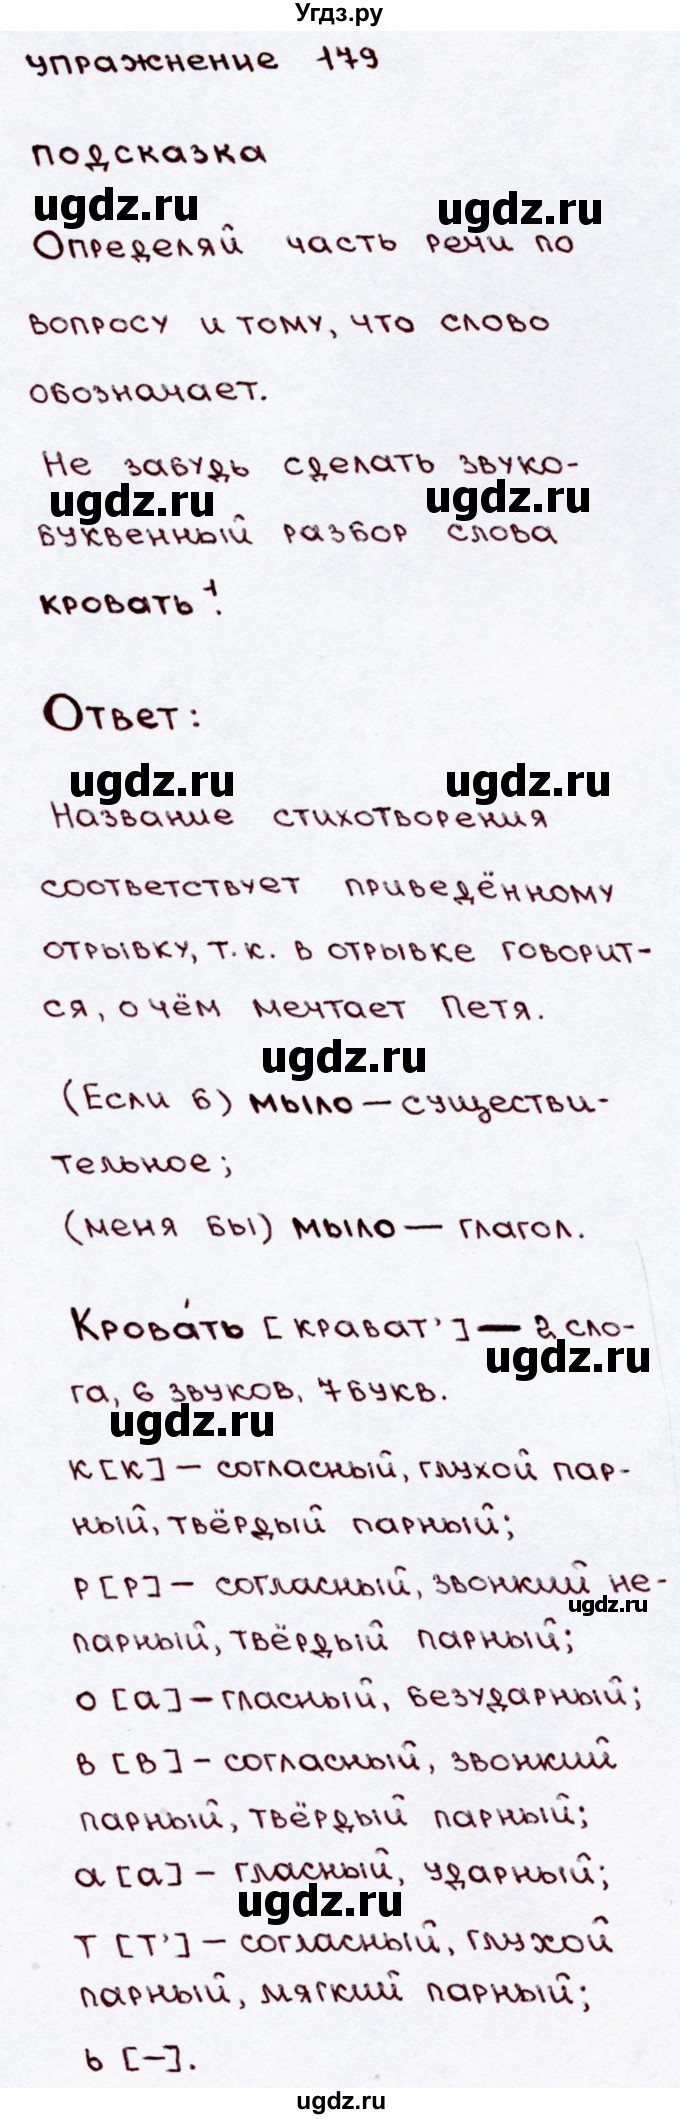 Угдз.ру
упражнение 179
подсказка
ugdz.ru ugdz.ru
Определяй часть речи по
вопросу и тому, что слово
обозначает.
Не забудь сделать звуко-
ugdz.ru ugdz.ru
буквенный разбор слова
кровать¹.
Ответ:
ugdz.ru ugdz.ru
Название стихотворения
соответствует приведённому
отрывку, т.к. в отрывке говорит-
ся, о чём мечтает Петя.
ugdz.ru
(Если б) мыло — существи-
тельное;
(меня бы) мыло — глагол.
Крова́ть [крават’] — 2 сло-
ugdz.ru
га, 6 звуков, 7 букв.
ugdz.ru
к [к] — согласный, глухой пар-
ный, твёрдый парный;
р [р] — согласный, звонкий не-
ugdz.ru
парный, твёрдый парный;
о [а] — гласный, безударный;
в [в] - согласный, звонкий
парный, твёрдый парный;
а [а] — гласный, ударный;
ugdz.ru
т [т’] — согласный, глухой
парный, мягкий парный;
ь [-].
ugdz.ru